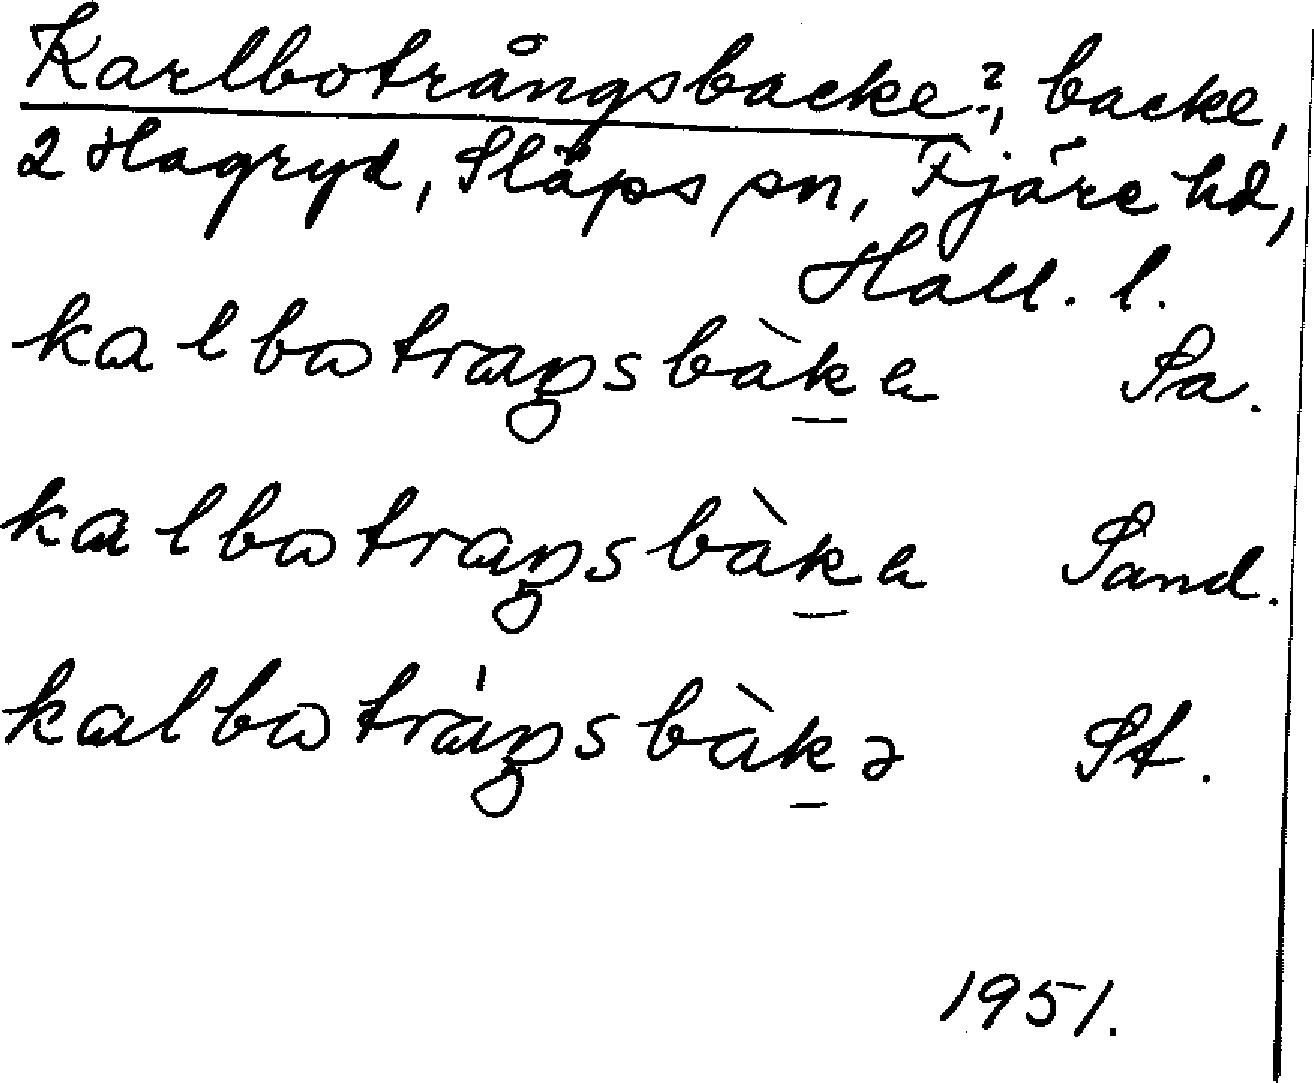 Karlbotrångsbacke?, backe,
2 Hagryd, Släps sn, Fjäre hd,
Hall. l.
kalbotraŋsbàka Sa.
kalbotraŋsbàka Sand.
kalbotráŋsbàkə St.
1951.